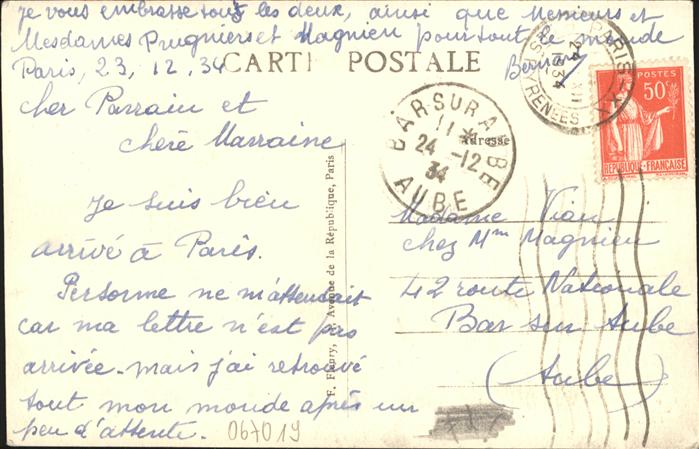 Je vous embrasse tous les deux, ainsi que Messieurs et
Mesdames Prugniers et Magnien pour tout le monde
Paris, 23, 12, 34
CARTE POSTALE
cher Parrain et
chère Marraine
Je suis bien
arrivé à Paris.
Personne ne m'attendait
car ma lettre n'est pas
arrivée. mais j'ai retrouvé
tout mon monde après un
peu d'attente.
067019
F. Fleury, Avenue de la République, Paris
BAR SUR AUBE
11 *
24 -12
34
AUBE
Adresse
PARIS
24 XII
34
R. RENNES
POSTES
50c
REPUBLIQUE-FRANÇAISE
Madame Vian
chez Mme Magnien
42 route Nationale
Bar sur Aube
(Aube)